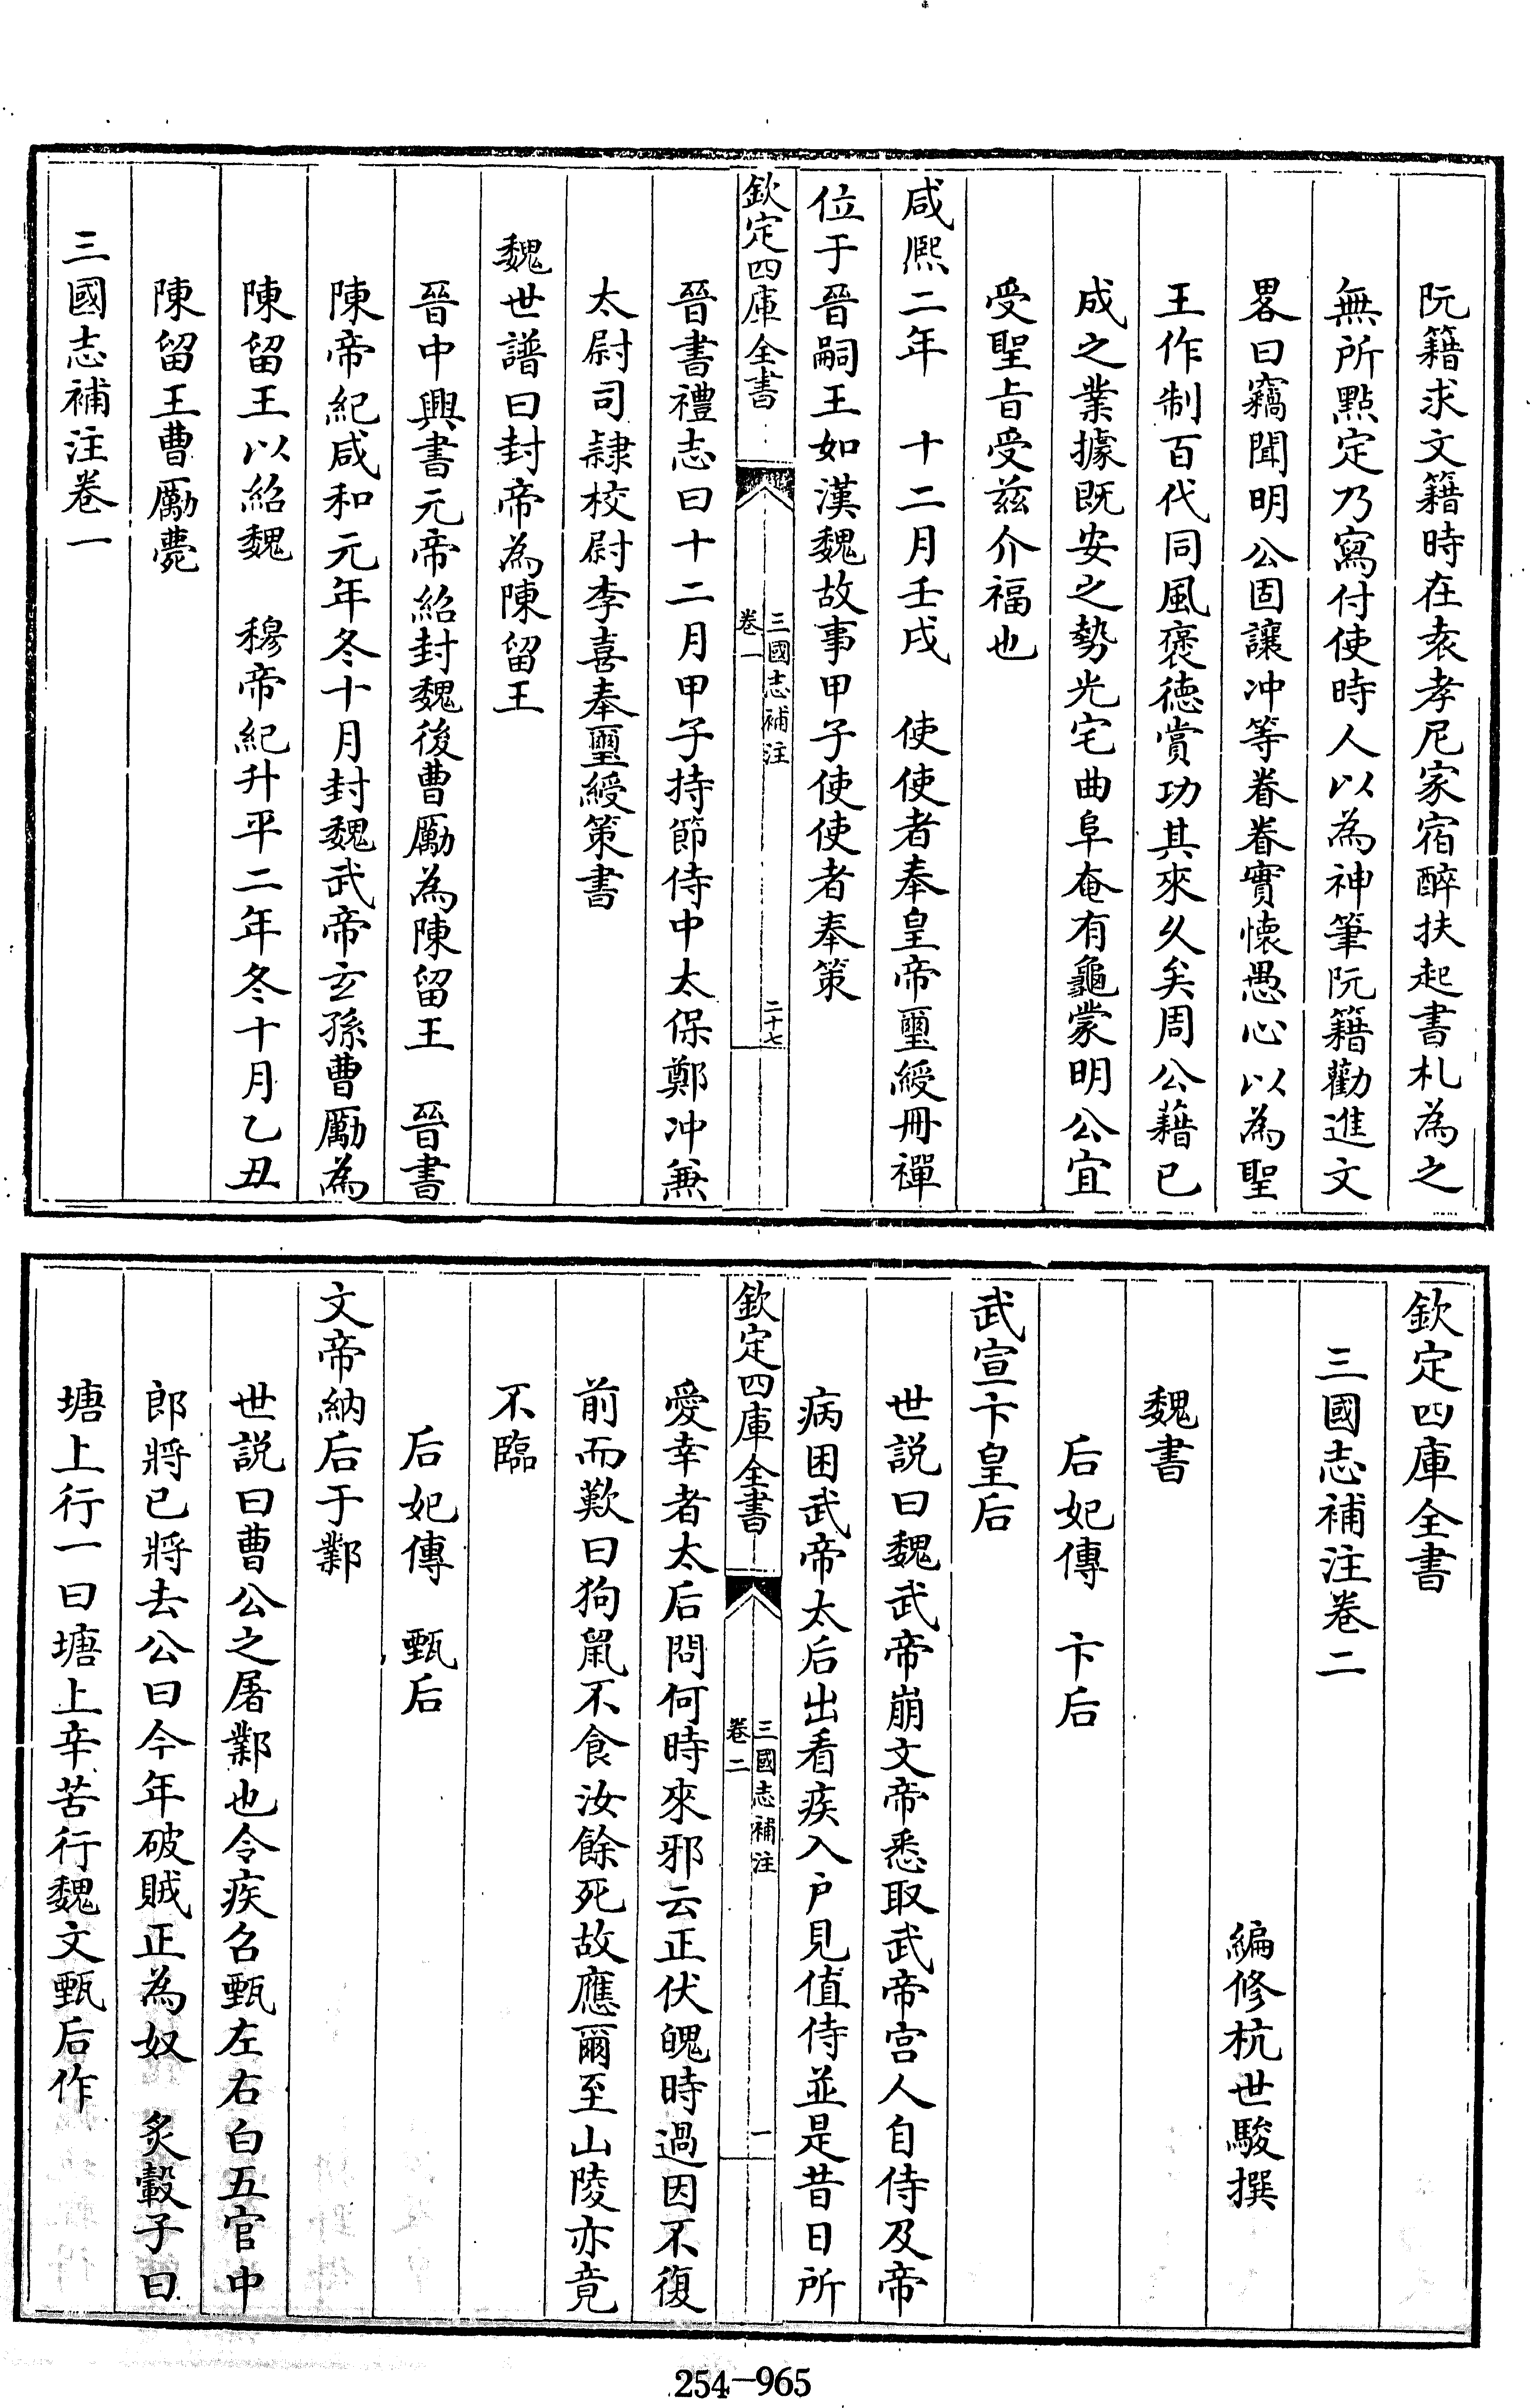 阮籍求文籍時在袁孝尼家宿醉扶起書札為之
無所點定乃寫付使時人以為神筆阮籍勸進文
畧曰竊聞明公固讓冲等眷眷實懷愚心以為聖
王作制百代同風褒徳賞功其來久矣周公藉已
成之業據既安之勢光宅曲阜奄有龜蒙明公宜
受聖㫖受兹介福也
咸熙二年 十二月壬戌 使使者奉皇帝璽綬冊禪
位于晉嗣王如漢魏故事甲子使使者奉策
欽定四庫全書 三國志補注 卷一 二十七
晉書禮志曰十二月甲子持節侍中太保鄭冲兼
太尉司隷校尉李喜奉璽綬策書
魏世譜曰封帝為陳留王
晉中興書元帝紹封魏後曹勵為陳留王 晉書
陳帝紀咸和元年冬十月封魏武帝玄孫曹勵為
陳留王以紹魏 穆帝紀升平二年冬十月乙丑
陳留王曹勵薨
三國志補注卷一
欽定四庫全書
三國志補注卷二
編修杭世駿撰
魏書
后妃傳 卞后
武宣卞皇后
世説曰魏武帝崩文帝悉取武帝宫人自侍及帝
病困武帝太后出看疾入户見值侍並是昔日所
欽定四庫全書 三國志補注 卷二 一
愛幸者太后問何時來邪云正伏魄時過因不復
前而歎曰狗鼠不食汝餘死故應爾至山陵亦竟
不臨
后妃傳 甄后
文帝納后于鄴
世説曰曹公之屠鄴也令疾召甄左右白五官中
郎將已將去公曰今年破賊正為奴 炙轂子曰
塘上行一曰塘上辛苦行魏文甄后作
254-965